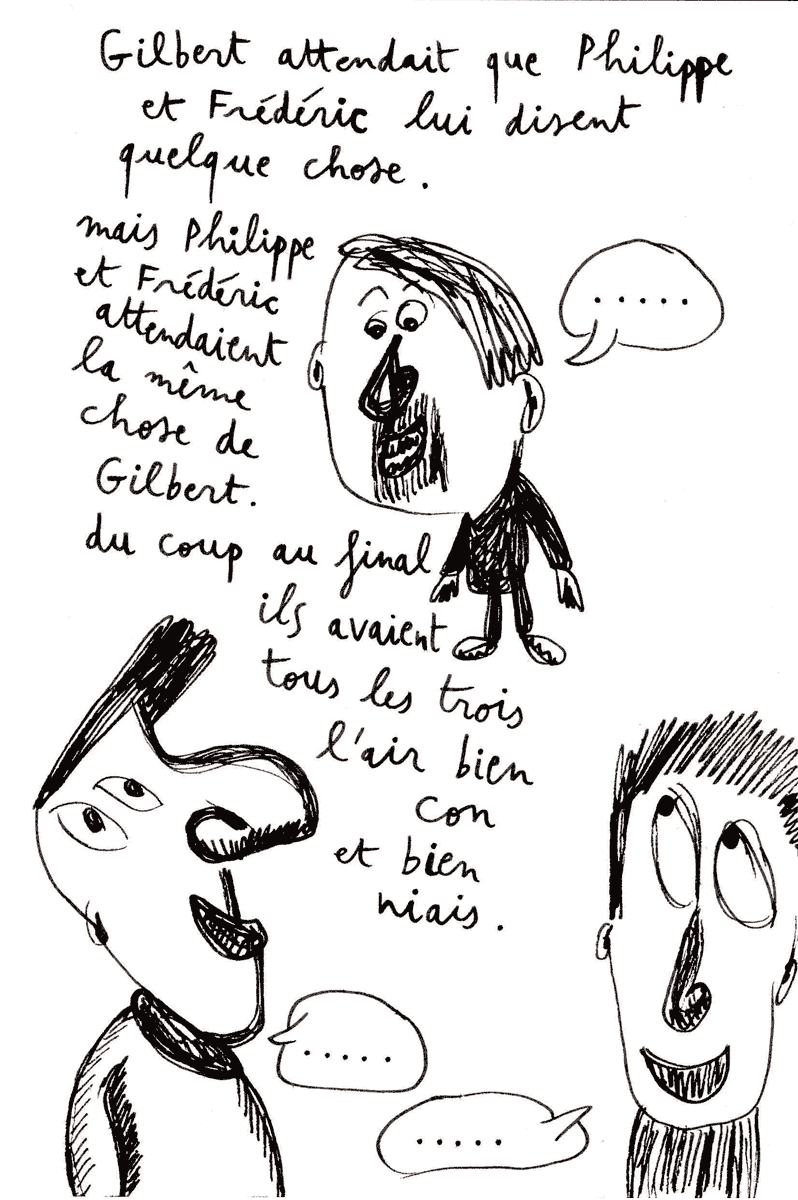 Gilbert attendait que Philippe
et Frédéric lui disent
quelque chose.
mais Philippe
et Frédéric
attendaient
la même
chose de
Gilbert.
.....
du coup au final
ils avaient
tous les trois
l'air bien
con
et bien
niais.
.....
.....